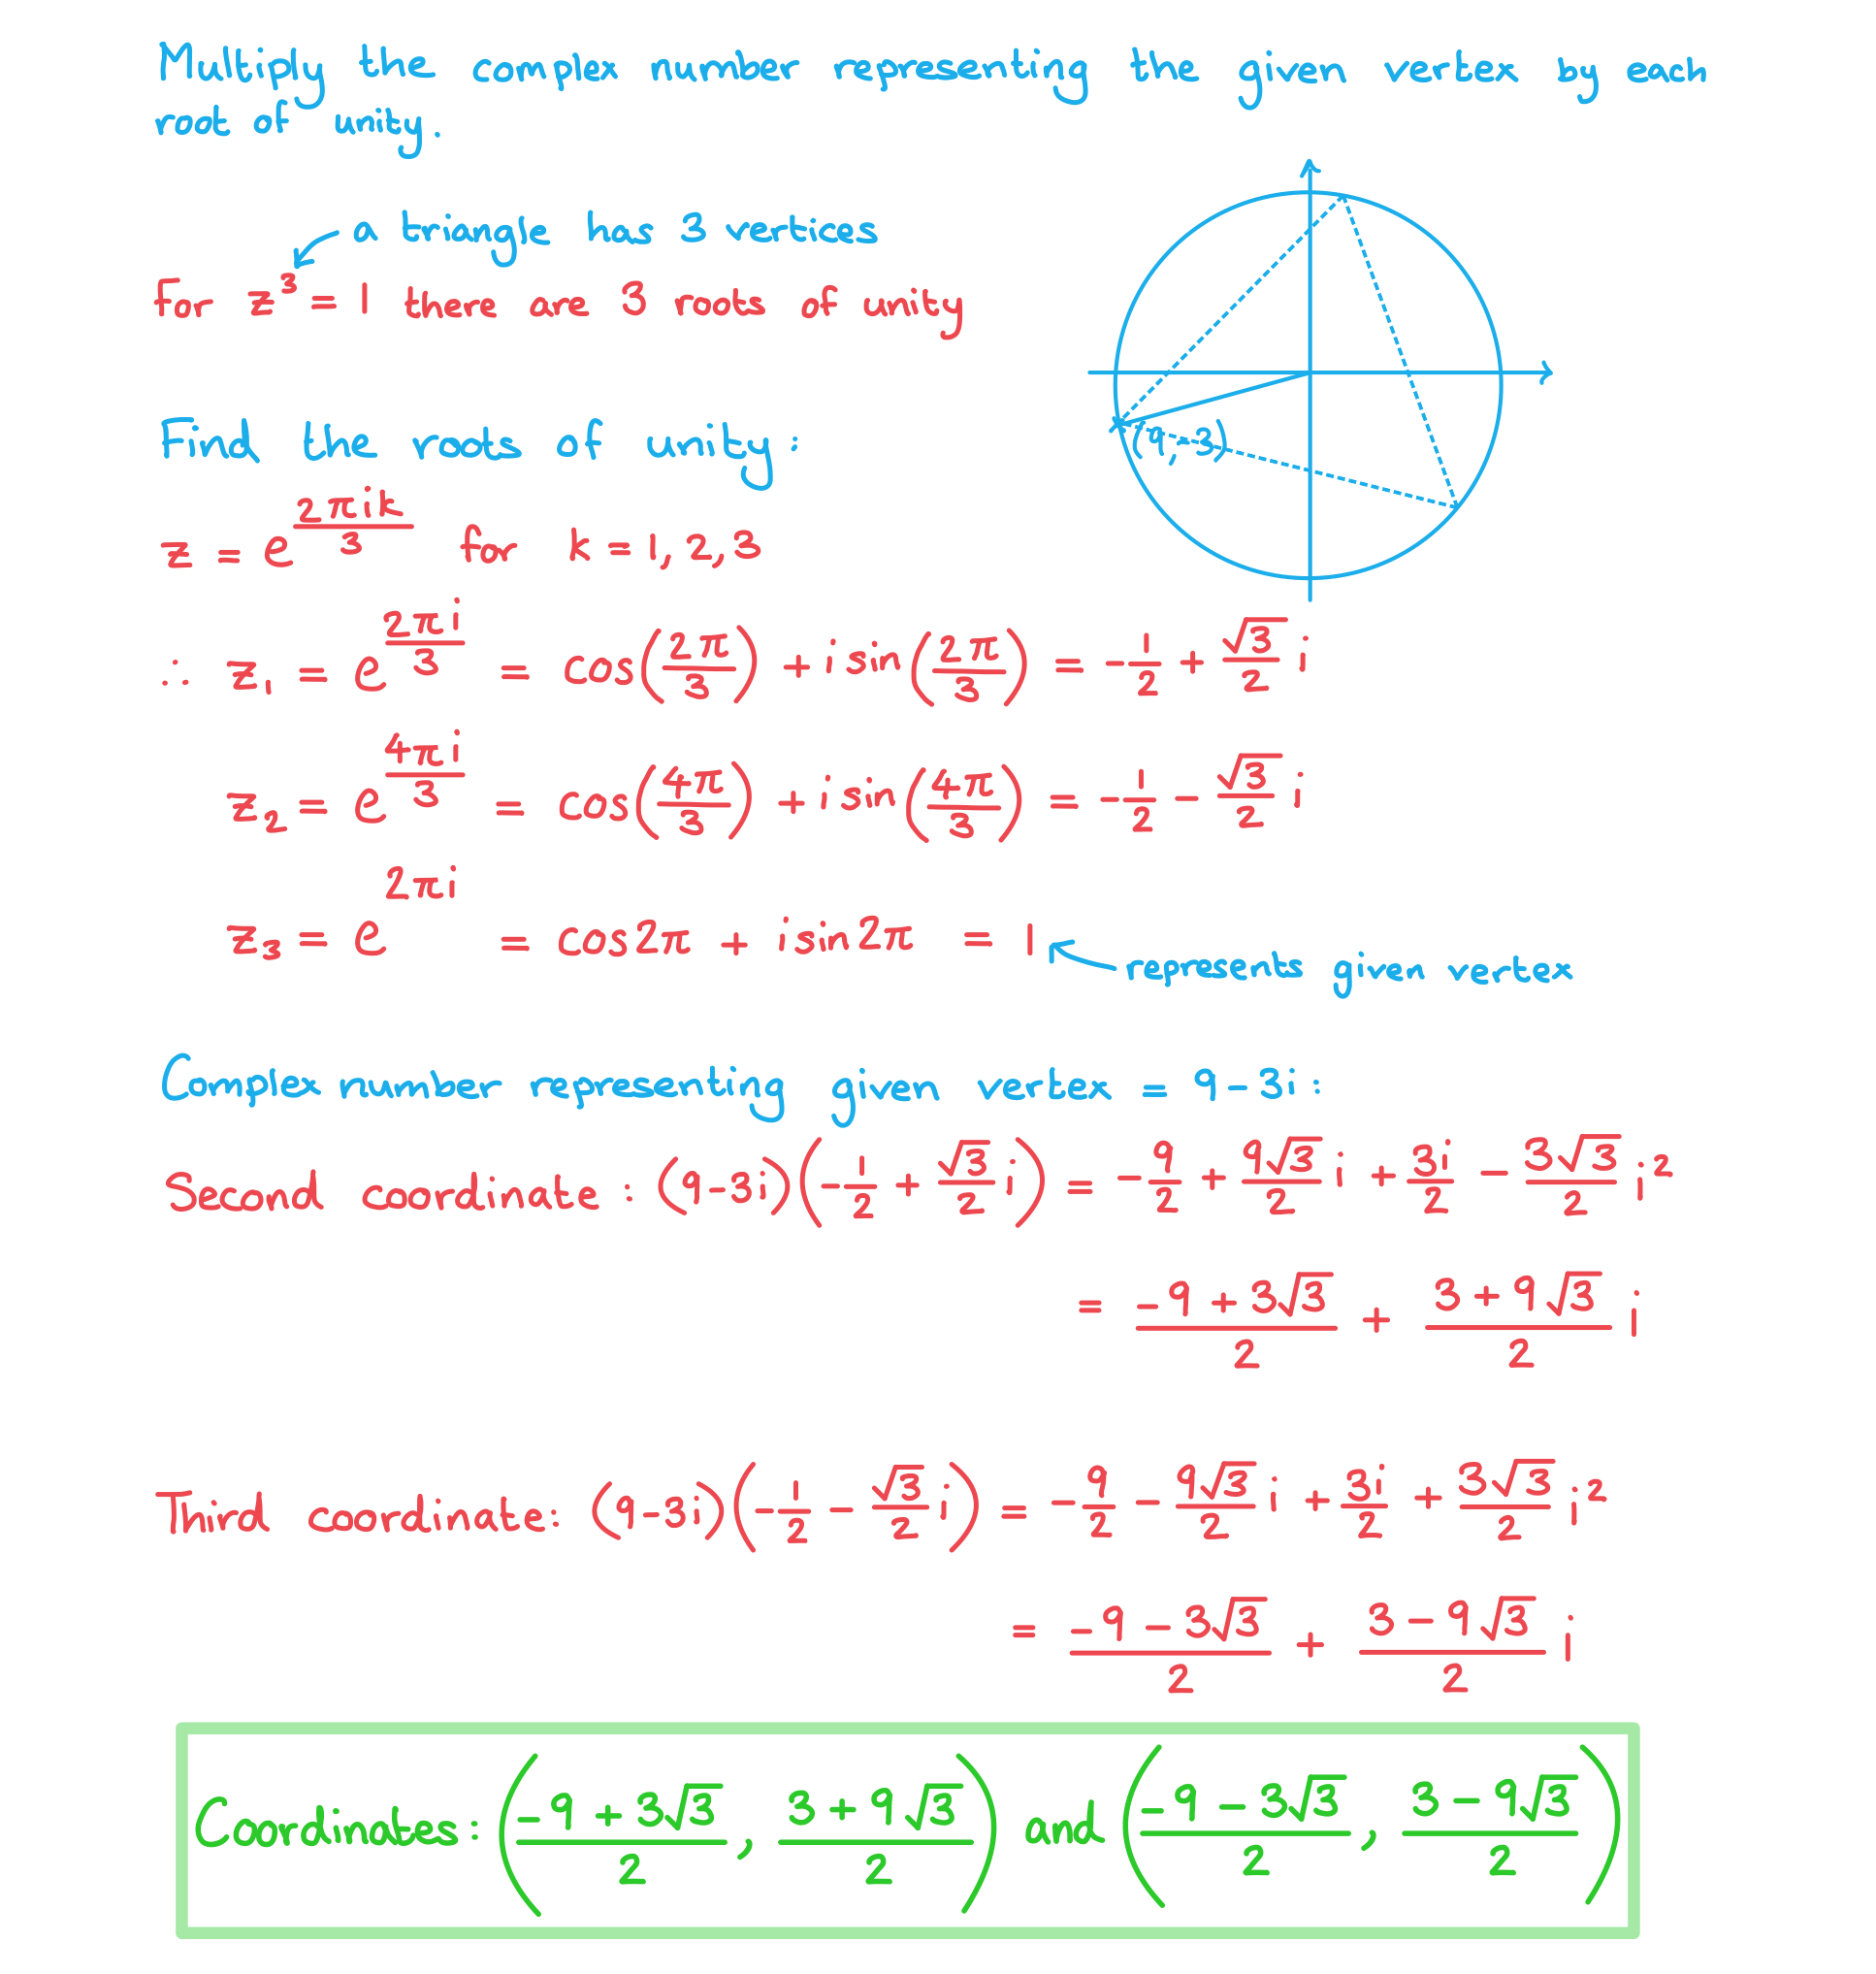 Multiply the complex number representing the given vertex by each
root of unity.
a triangle has 3 vertices
for z³ = 1 there are 3 roots of unity
(9,-3)
Find the roots of unity:
z = e^(2πik/3) for k = 1, 2, 3
∴ z₁ = e^(2πi/3) = cos(2π/3) + i sin(2π/3) = -1/2 + √3/2 i
z₂ = e^(4πi/3) = cos(4π/3) + i sin(4π/3) = -1/2 - √3/2 i
z₃ = e^(2πi) = cos2π + i sin2π = 1
represents given vertex
Complex number representing given vertex = 9-3i:
Second coordinate: (9-3i)(-1/2 + √3/2 i) = -9/2 + 9√3/2 i + 3i/2 - 3√3/2 i²
= (-9 + 3√3)/2 + (3 + 9√3)/2 i
Third coordinate: (9-3i)(-1/2 - √3/2 i) = -9/2 - 9√3/2 i + 3i/2 + 3√3/2 i²
= (-9 - 3√3)/2 + (3 - 9√3)/2 i
Coordinates: ((-9 + 3√3)/2, (3 + 9√3)/2) and ((-9 - 3√3)/2, (3 - 9√3)/2)